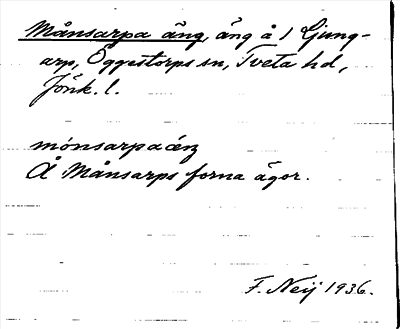 Månsarpa äng, äng å 1 Ljung-
arp, Öggestorps sn, Tveta hd,
Jönk. l.
mónsarpaǽŋ
Å Månsarps forna ägor.
F. Neij 1936.